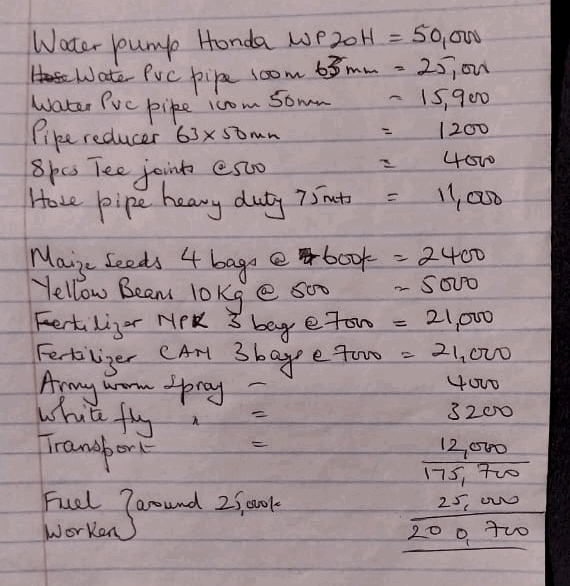 Water pump Honda WP20H = 50,000
Water Pvc pipe 100m 63mm = 25,000
Water Pvc pipe 100m 50mm = 15,900
Pipe reducer 63x50mm = 1200
8pcs Tee joints @500 = 4000
Hose pipe heavy duty 75mts = 11,000
Maize Seeds 4 bags @ 600/= = 2400
Yellow Beans 10Kg @ 500 = 5000
Fertilizer NPK 3 bag @ 7000 = 21,000
Fertilizer CAN 3 bags @ 7000 = 21,000
Army worm Spray - 4000
White fly " = 3200
Transport = 12,000
175,700
Fuel } around 25,000/= 25,000
Workers }
200,700